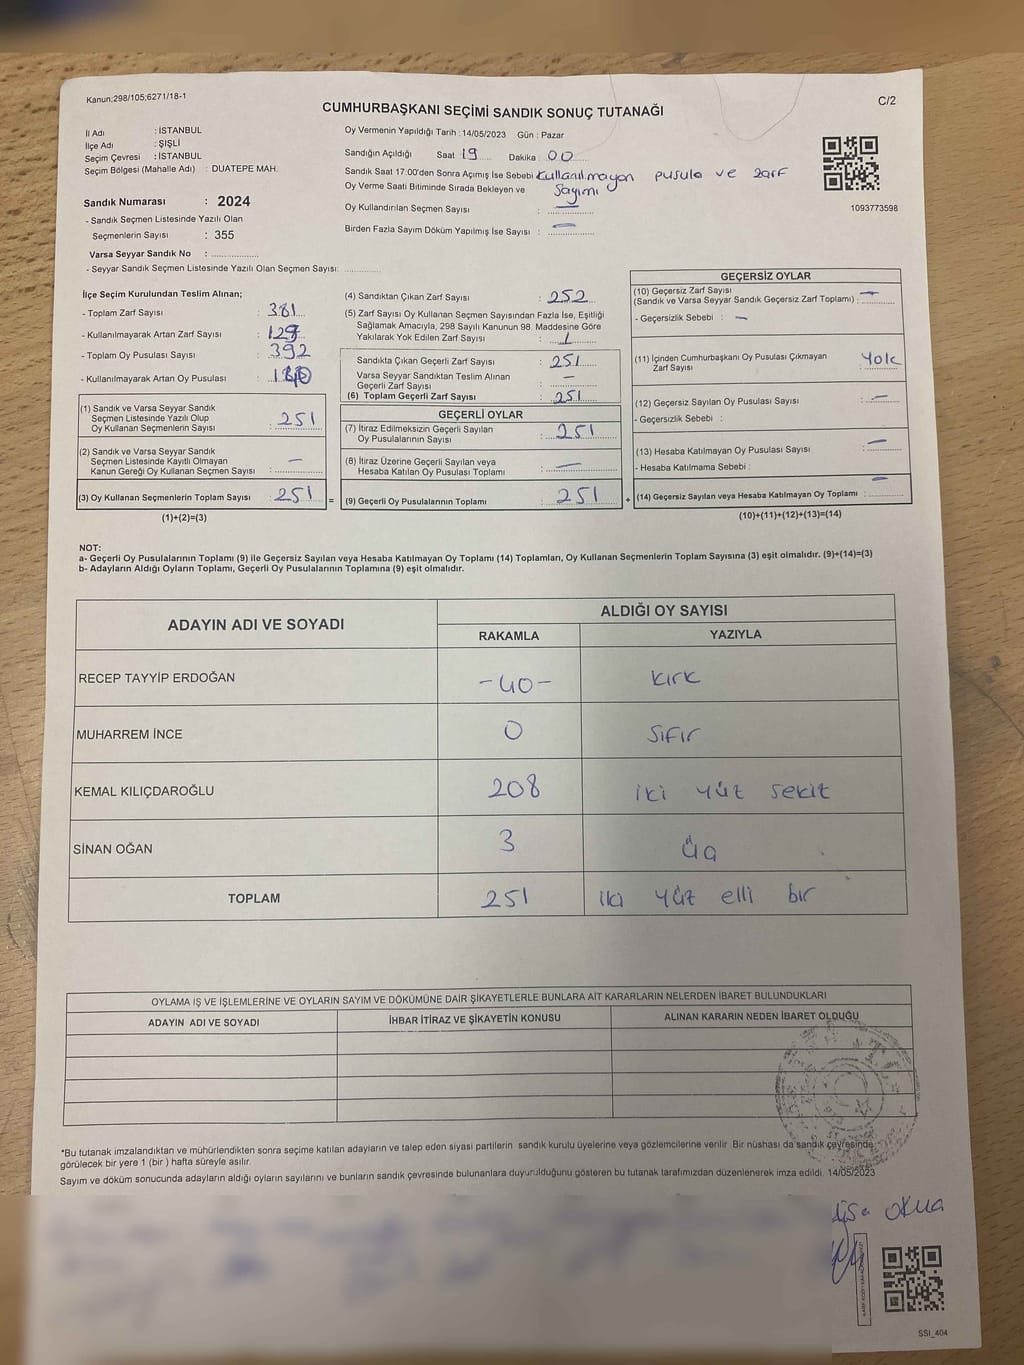 Kanun:298/105;6271/18-1
CUMHURBAŞKANI SEÇİMİ SANDIK SONUÇ TUTANAĞI
C/2
İl Adı : İSTANBUL
İlçe Adı : ŞİŞLİ
Seçim Çevresi : İSTANBUL
Seçim Bölgesi (Mahalle Adı) : DUATEPE MAH.
Sandık Numarası : 2024
- Sandık Seçmen Listesinde Yazılı Olan
Seçmenlerin Sayısı : 355
Varsa Seyyar Sandık No : ..............
- Seyyar Sandık Seçmen Listesinde Yazılı Olan Seçmen Sayısı: ............
Oy Vermenin Yapıldığı Tarih : 14/05/2023 Gün : Pazar
Sandığın Açıldığı Saat 19 Dakika : 00
Sandık Saat 17:00'den Sonra Açımış İse Sebebi Kullanılmayan pusula ve zarf
Oy Verme Saati Bitiminde Sırada Bekleyen ve sayımı
Oy Kullandırılan Seçmen Sayısı : —
Birden Fazla Sayım Döküm Yapılmış İse Sayısı : —
1093773598
İlçe Seçim Kurulundan Teslim Alınan;
- Toplam Zarf Sayısı : 381
- Kullanılmayarak Artan Zarf Sayısı : 129
- Toplam Oy Pusulası Sayısı : 392
- Kullanılmayarak Artan Oy Pusulası :
(1) Sandık ve Varsa Seyyar Sandık
Seçmen Listesinde Yazılı Olup
Oy Kullanan Seçmenlerin Sayısı : 251
(2) Sandık ve Varsa Seyyar Sandık
Seçmen Listesinde Kayıtlı Olmayan
Kanun Gereği Oy Kullanan Seçmen Sayısı : —
(3) Oy Kullanan Seçmenlerin Toplam Sayısı : 251 =
(1)+(2)=(3)
(4) Sandıktan Çıkan Zarf Sayısı : 252
(5) Zarf Sayısı Oy Kullanan Seçmen Sayısından Fazla İse, Eşitliği
Sağlamak Amacıyla, 298 Sayılı Kanunun 98. Maddesine Göre
Yakılarak Yok Edilen Zarf Sayısı : 1
Sandıkta Çıkan Geçerli Zarf Sayısı : 251
Varsa Seyyar Sandıktan Teslim Alınan
Geçerli Zarf Sayısı : —
(6) Toplam Geçerli Zarf Sayısı : 251
GEÇERLİ OYLAR
(7) İtiraz Edilmeksizin Geçerli Sayılan
Oy Pusulalarının Sayısı : 251
(8) İtiraz Üzerine Geçerli Sayılan veya
Hesaba Katılan Oy Pusulası Toplamı : —
(9) Geçerli Oy Pusulalarının Toplamı : 251 +
GEÇERSİZ OYLAR
(10) Geçersiz Zarf Sayısı
(Sandık ve Varsa Seyyar Sandık Geçersiz Zarf Toplamı) : —
- Geçersizlik Sebebi : —
(11) İçinden Cumhurbaşkanı Oy Pusulası Çıkmayan
Zarf Sayısı : Yok
(12) Geçersiz Sayılan Oy Pusulası Sayısı : —
- Geçersizlik Sebebi :
(13) Hesaba Katılmayan Oy Pusulası Sayısı : —
- Hesaba Katılmama Sebebi :
(14) Geçersiz Sayılan veya Hesaba Katılmayan Oy Toplamı : —
(10)+(11)+(12)+(13)=(14)
NOT:
a- Geçerli Oy Pusulalarının Toplamı (9) ile Geçersiz Sayılan veya Hesaba Katılmayan Oy Toplamı (14) Toplamları, Oy Kullanan Seçmenlerin Toplam Sayısına (3) eşit olmalıdır. (9)+(14)=(3)
b- Adayların Aldığı Oyların Toplamı, Geçerli Oy Pusulalarının Toplamına (9) eşit olmalıdır.
ADAYIN ADI VE SOYADI ALDIĞI OY SAYISI
RAKAMLA YAZIYLA
RECEP TAYYİP ERDOĞAN -40- kırk
MUHARREM İNCE 0 sıfır
KEMAL KILIÇDAROĞLU 208 iki yüz sekiz
SİNAN OĞAN 3 üç
TOPLAM 251 iki yüz elli bir
OYLAMA İŞ VE İŞLEMLERİNE VE OYLARIN SAYIM VE DÖKÜMÜNE DAİR ŞİKAYETLERLE BUNLARA AİT KARARLARIN NELERDEN İBARET BULUNDUKLARI
ADAYIN ADI VE SOYADI İHBAR İTİRAZ VE ŞİKAYETİN KONUSU ALINAN KARARIN NEDEN İBARET OLDUĞU
*Bu tutanak imzalandıktan ve mühürlendikten sonra seçime katılan adayların ve talep eden siyasi partilerin sandık kurulu üyelerine veya gözlemcilerine verilir. Bir nüshası da sandık çevresinde
görülecek bir yere 1 (bir ) hafta süreyle asılır.
Sayım ve döküm sonucunda adayların aldığı oyların sayılarını ve bunların sandık çevresinde bulunanlara duyurulduğunu gösteren bu tutanak tarafımızdan düzenlenerek imza edildi. 14/05/2023
SSI_404